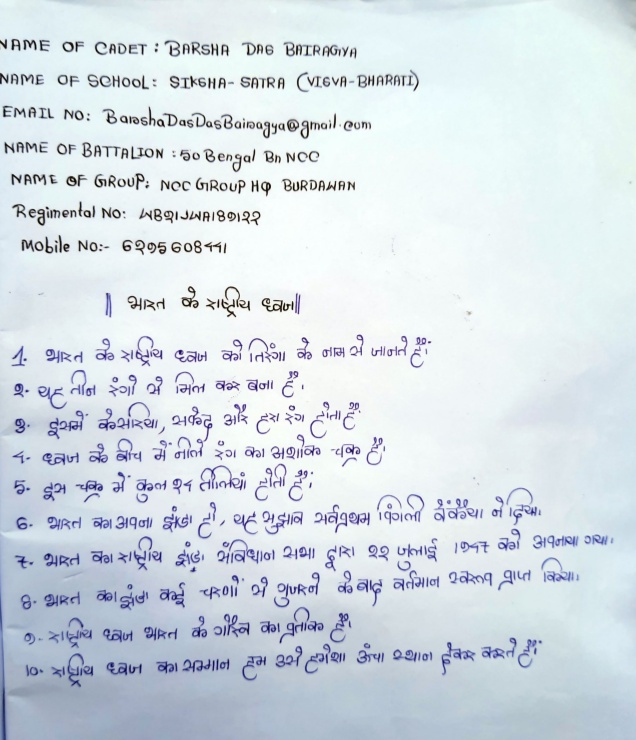 NAME OF CADET : BARSHA DAS BAIRAGYA
NAME OF SCHOOL: SIKSHA-SATRA (VISVA-BHARATI)
EMAIL NO: BarshaDasDasBairagya@gmail.com
NAME OF BATTALION : 50 Bengal Bn NCC
NAME OF GROUP: NCC GROUP HQ BURDAWAN
Regimental No: WB21JWA189122
Mobile No:- 6295608441
|| भारत के राष्ट्रीय ध्वज ||
1. भारत के राष्ट्रीय ध्वज को तिरंगा के नाम से जानते हैं।
2. यह तीन रंगो से मिल कर बना है।
3. इसमें केसरिया, सफेद और हरा रंग होता है।
4. ध्वज के बीच में नीले रंग का अशोक चक्र है।
5. इस चक्र में कुल 24 तीलियां होती हैं।
6. भारत का अपना झंडा हो, यह सुझाव सर्वप्रथम पिंगली वैंकैया ने दिया।
7. भारत का राष्ट्रीय झंडा संविधान सभा द्वारा 22 जुलाई 1947 को अपनाया गया।
8. भारत का झंडा कई चरणों से गुजरने के बाद वर्तमान स्वरूप प्राप्त किया।
9. राष्ट्रीय ध्वज भारत के गौरव का प्रतीक है।
10. राष्ट्रीय ध्वज का सम्मान हम उसे हमेशा ऊंचा स्थान देकर करते हैं।